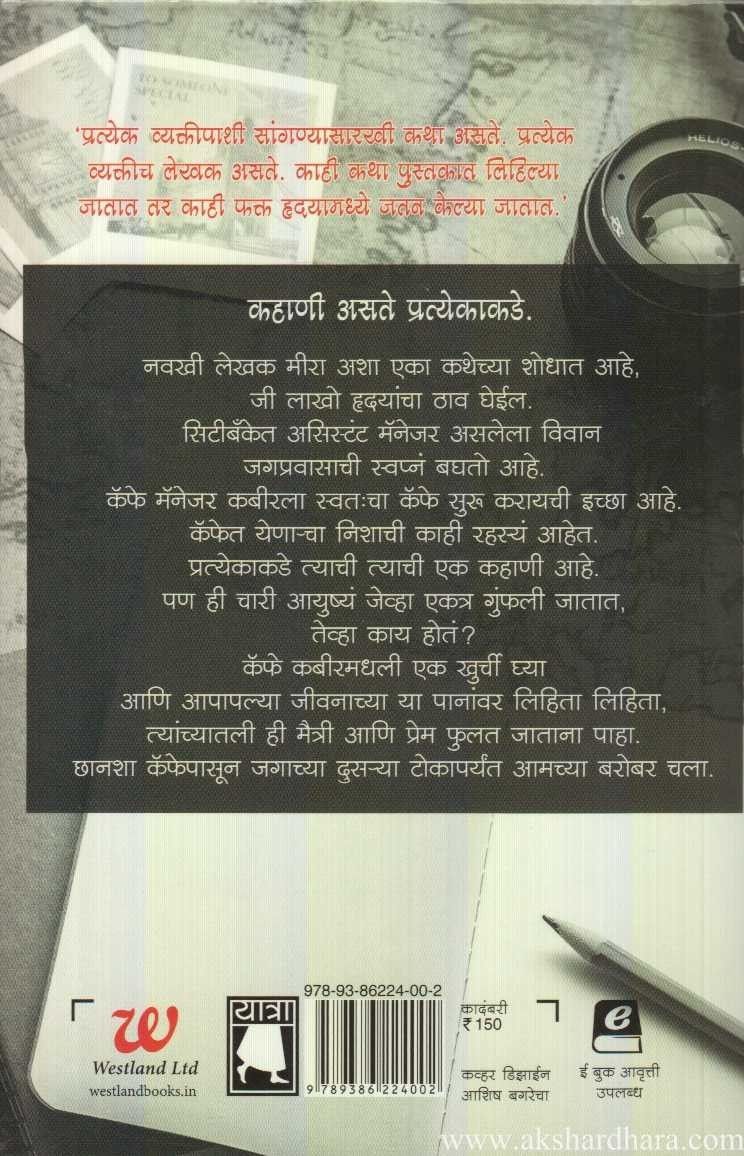 TO SOMEONE
SPECIAL
HELIOS-
'प्रत्येक व्यक्तीपाशी सांगण्यासारखी कथा असते. प्रत्येक
व्यक्तीच लेखक असते. काही कथा पुस्तकात लिहिल्या
जातात तर काही फक्त हृदयामध्ये जतन केल्या जातात.'
कहाणी असते प्रत्येकाकडे.
नवखी लेखक मीरा अशा एका कथेच्या शोधात आहे,
जी लाखो हृदयांचा ठाव घेईल.
सिटीबँकेत असिस्टंट मॅनेजर असलेला विवान
जगप्रवासाची स्वप्नं बघतो आहे.
कॅफे मॅनेजर कबीरला स्वतःचा कॅफे सुरू करायची इच्छा आहे.
कॅफेत येणाऱ्या निशाची काही रहस्यं आहेत.
प्रत्येकाकडे त्याची त्याची एक कहाणी आहे.
पण ही चारी आयुष्यं जेव्हा एकत्र गुंफली जातात,
तेव्हा काय होतं?
कॅफे कबीरमधली एक खुर्ची घ्या
आणि आपापल्या जीवनाच्या या पानांवर लिहिता लिहिता,
त्यांच्यातली ही मैत्री आणि प्रेम फुलत जाताना पाहा.
छानशा कॅफेपासून जगाच्या दुसऱ्या टोकापर्यंत आमच्या बरोबर चला.
W
Westland Ltd
westlandbooks.in
यात्रा
978-93-86224-00-2
9 789386 224002
कादंबरी
₹ 150
कव्हर डिझाईन
आशिष बगरेचा
e
ई बुक आवृत्ती
उपलब्ध
www.akshardhara.com